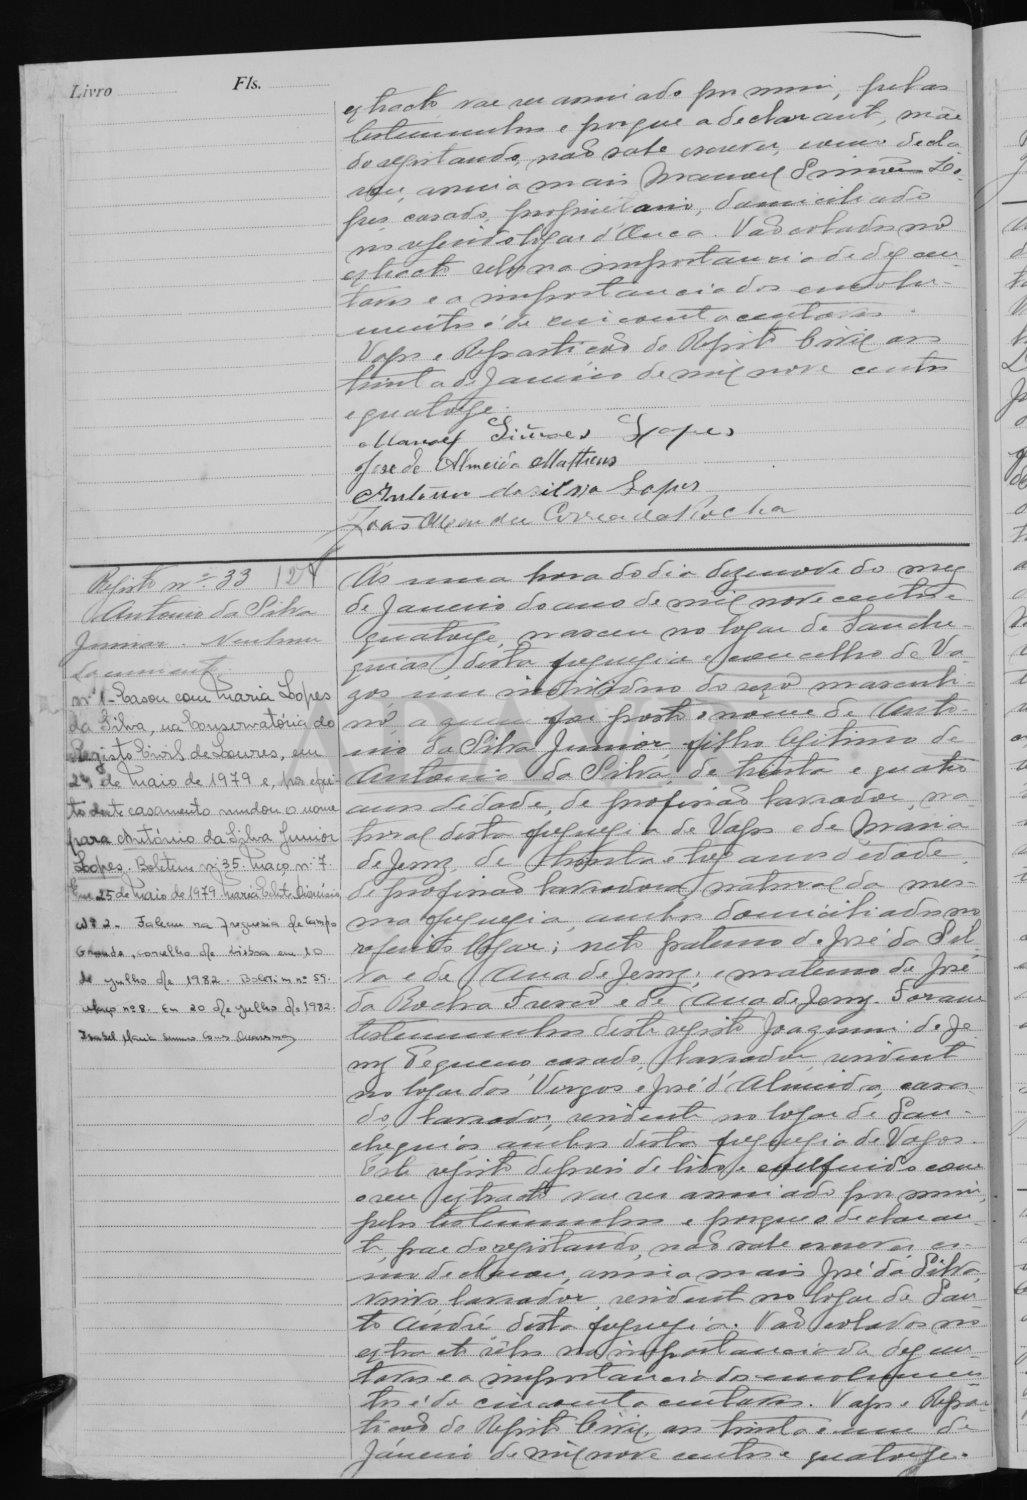 Livro Fls.
extracto vae ser assinado por mim, pelas
testemunhas e porque a declarante, mãe
do registando, não sabe escrever, como decla-
rou, assina mais Manoel Simões Lo-
pes casado, proprietario, domiciliado
no referido logar d'Ouca. Vão colados no
extracto selos na importancia de dez cen-
tavos e a importancia dos emolu-
mentos é de cincoenta centavos.
Vagos e Repartição do Registo Civil aos
trinta de Janeiro de mil nove centos
e quatorze.
Manoel Simões Lopes
José de Almeida Matheus
Antonio da Silva Lopes
João Correia da Rocha
Registo nº 33
Antonio da Silva
Junior. Nenhum
documento
nº 1 - Casou com Maria Lopes
da Silva, na Conservatória do
Registo Civil de Loures, em
24 de Maio de 1979 e, por efei-
to deste casamento mudou o nome
para António da Silva Junior
Lopes. Boletim nº 35. Maço nº 7.
Em 25 de Maio de 1979. Maria
nº 2 - Faleceu na freguesia de Campo
Grande, concelho de Lisboa em 10
de julho de 1982. Boletim nº 59.
Maço nº 8. Em 20 de julho de 1982.
Isabel Maria
Ás uma hora do dia dezenove do mez
de Janeiro do ano de mil nove centos e
quatorze, nasceu no logar de Sanche-
quias, desta freguezia e concelho de Va-
gos um individuo do sexo masculi-
no a quem foi posto o nome de Anto-
nio da Silva Junior, filho legitimo de
Antonio da Silva, de trinta e quatro
anos de idade, de profissão lavrador, na-
tural desta freguezia de Vagos e de Maria
de Jesus, de trinta e tres anos d'edade,
de profissão lavradora, natural da mes-
ma freguezia, ambos domiciliados no
referido logar; neto paterno de José da Sil-
va e de Ana de Jesus; e materno de José
da Rocha e de Ana de Jesus. Foram
testemunhas deste registo Joaquim de Je-
sus Pequeno casado, lavrador, residente
no logar dos Vergos e José d'Almeida, casa-
do, lavrador, residente no logar de San-
chequias ambos desta freguezia de Vagos.
Este registo depois de lido e conferido com
o seu extracto vae ser assinado por mim,
pelas testemunhas e porque o declaran-
te, pae do registando, não sabe escrever co-
mo declarou, assina mais José da Silva,
viuvo lavrador, residente no logar de San-
to André, desta freguezia. Vão colados no
extracto selos na importancia de dez cen-
tavos e a importancia dos emolumen-
tos é de cincoenta centavos. Vagos e Repar-
tição do Registo Civil, aos trinta e um de
Janeiro de mil nove centos e quatorze.